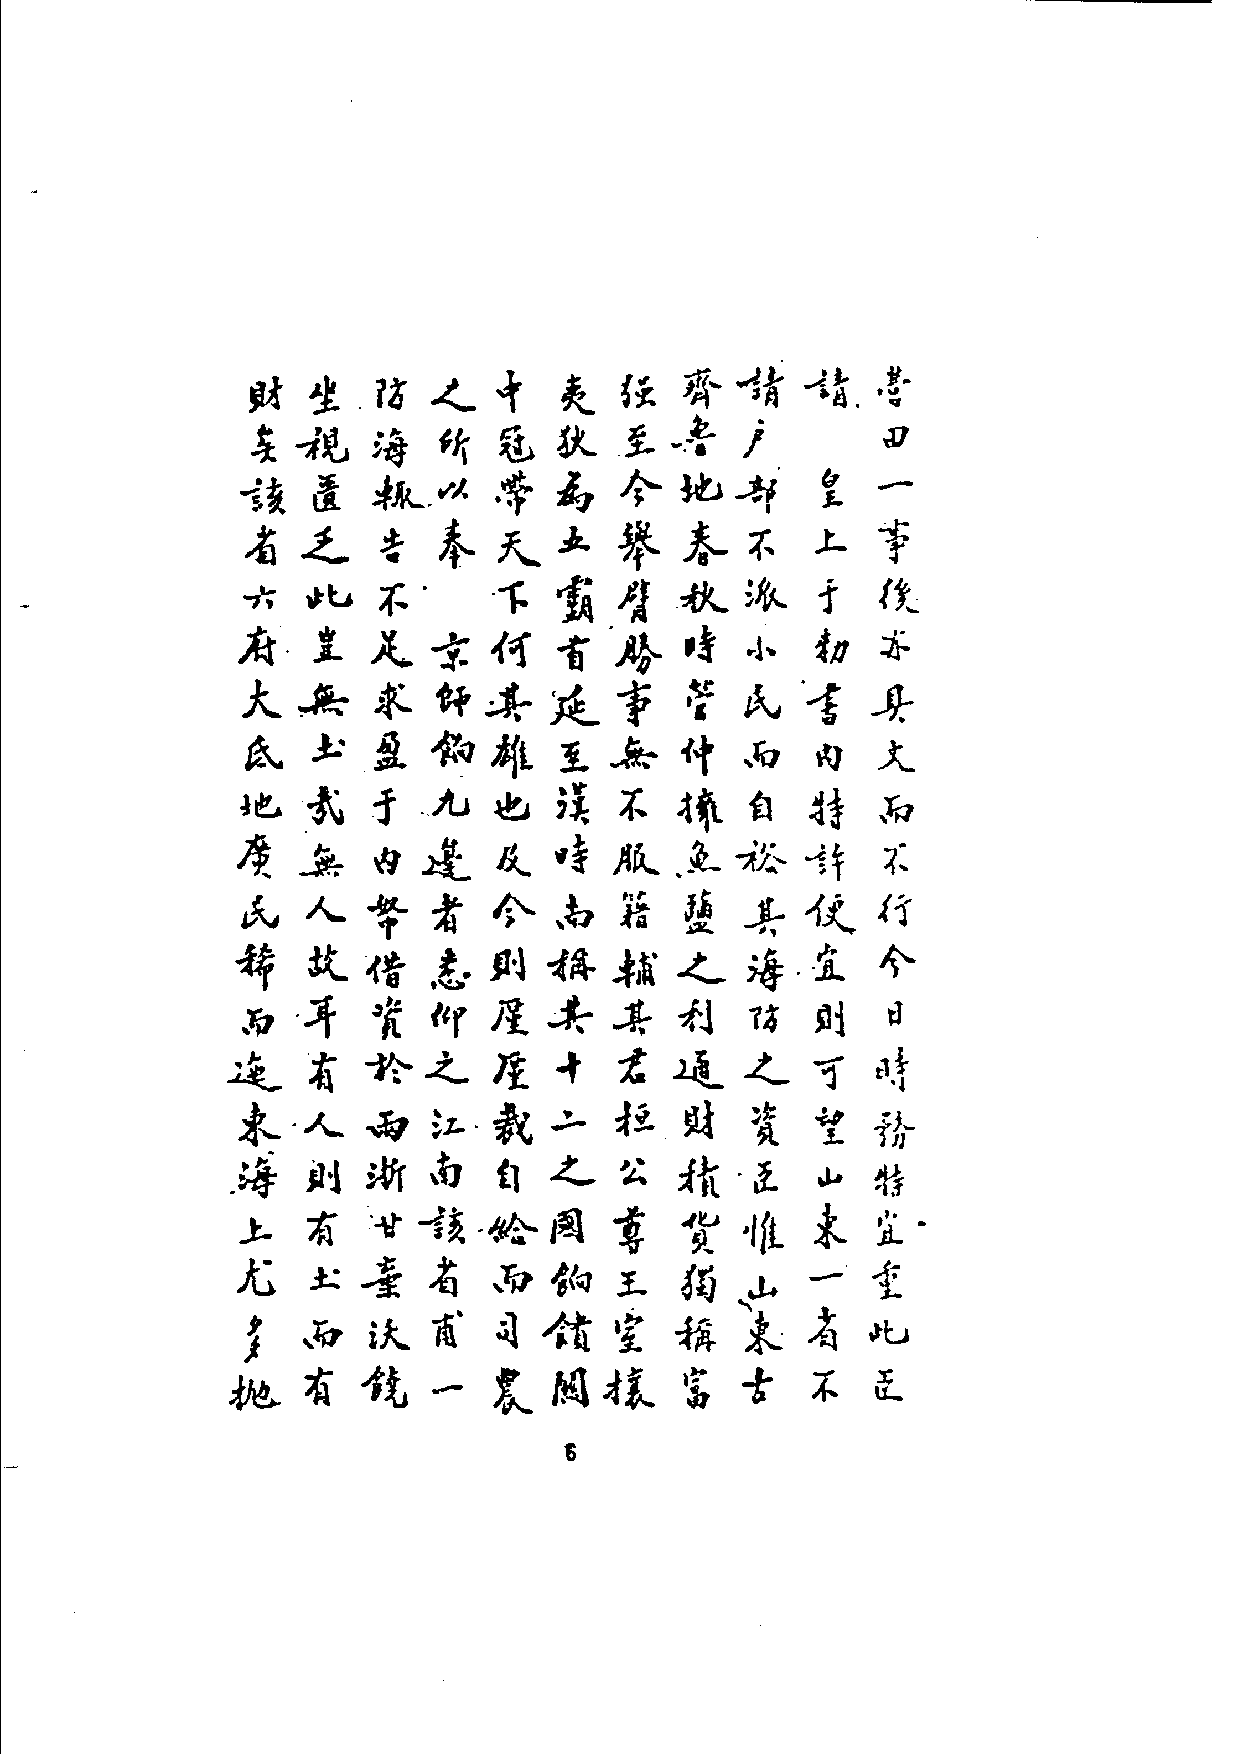 營田一事後亦具文而不行今日時務特宜重此臣
請　皇上于勑書內特許便宜則可望山東一省不
請户部不派小民而自裕其海防之資臣惟山東古
齊魯地春秋時管仲擁魚鹽之利通財積貨獨稱富
强至今舉臂勝事無不服籍輔其君桓公尊王室攘
夷狄為五霸首延至漢時尚稱其十二之國餉饋關
中冠帶天下何其雄也及今則厪厪裁自給而司農
之所以奉　京師餉九邊者悉仰之江南該省甫一
防海輒告不足求盈于內帑借資於兩浙甘棄沃饒
坐視匱乏此豈無土哉無人故耳有人則有土而有
財矣該省六府大氐地廣民稀而迤東海上尤多拋
6